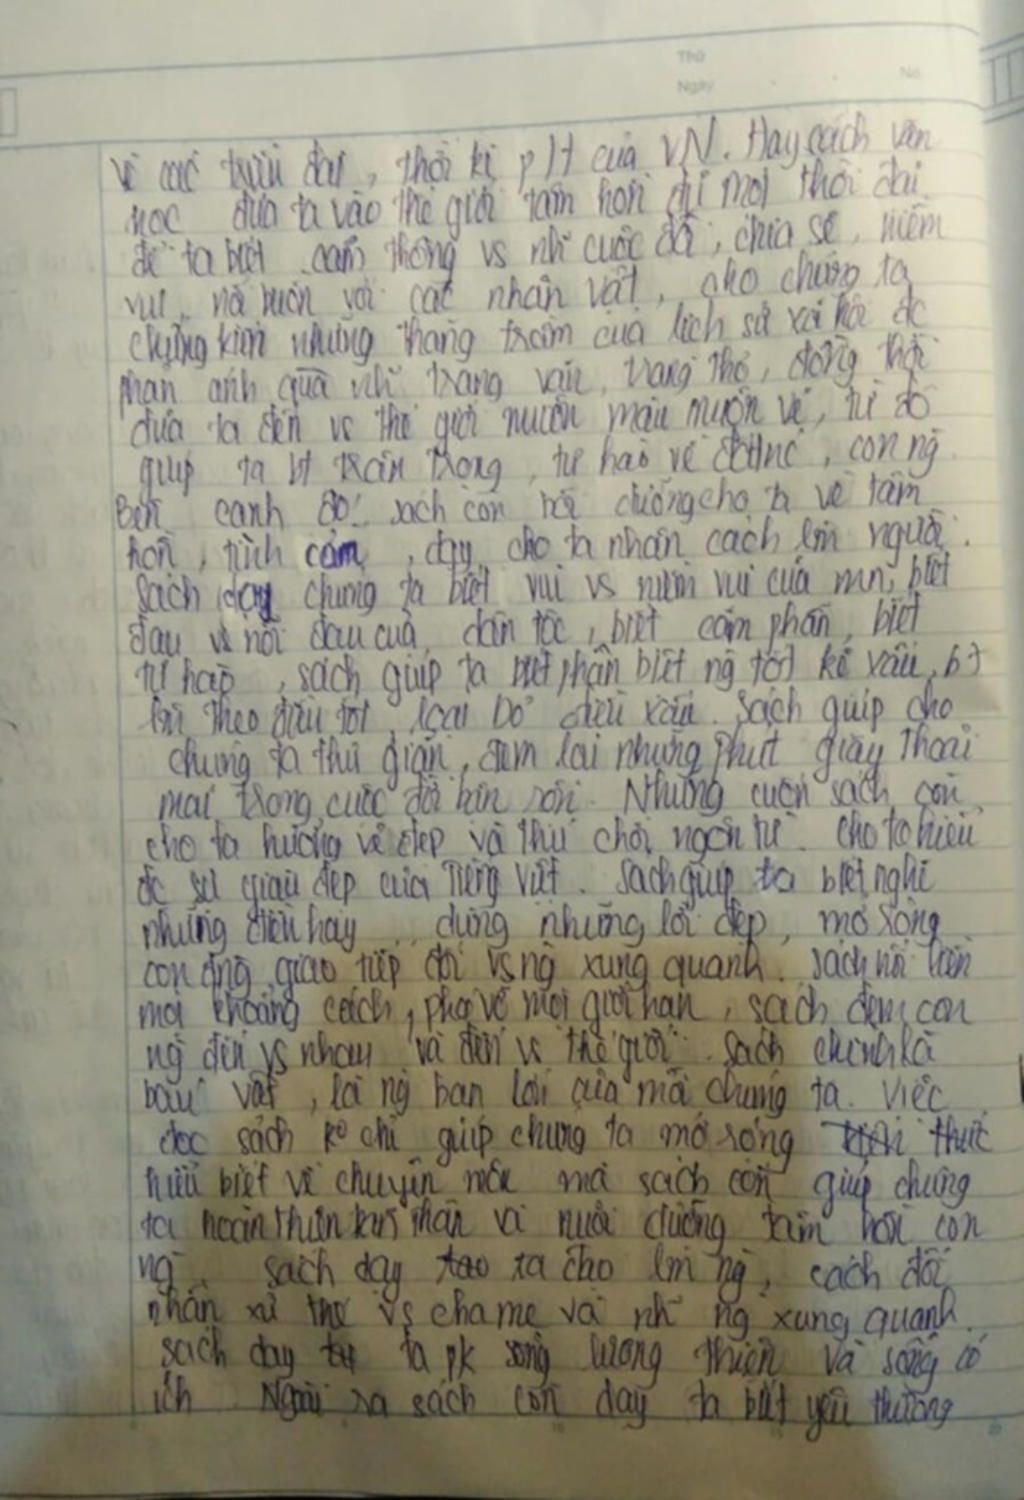 Thứ
Ngày No.
về các triều đại, thời kì pH của VN. Hay sách văn
học đưa ta vào thế giới tâm hồn để mọi thời đại
để ta biết cảm thông vs nh~ cuộc đời, chia sẻ, niềm
vui, nỗi buồn với các nhân vật, cho chúng ta
chứng kiến những thăng trầm của lịch sử xã hội đc
phản ánh qua nh~ trang văn, trang thơ, đồng thời
đưa ta đến vs thế giới muôn màu muôn vẻ, từ đó
giúp ta bt trân trọng, tự hào về đất nc, con ng
Bên cạnh đó sách còn bồi dưỡng cho ta về tâm
hồn, tình cảm, dạy cho ta nhân cách lm người.
Sách dạy chúng ta biết vui vs niềm vui của mn, biết
đau vs nỗi đau của dân tộc, biết căm phẫn, biết
tự hào, sách giúp ta biết phân biệt ng tốt kẻ xấu, bt
lm theo điều tốt, loại bỏ điều xấu. Sách giúp cho
chúng ta thư giãn, đem lại những phút giây thoải
mái trong cuộc đời bận rộn. Những cuốn sách còn
cho ta hướng về đẹp và thú chơi ngôn từ. Cho ta hiểu
đc sự giàu đẹp của Tiếng Việt. Sách giúp ta biết nghĩ
những điều hay, dùng những lời đẹp, mở rộng
con đng giao tiếp đối vs ng xung quanh. Sách nối liền
mọi khoảng cách, phá vỡ mọi giới hạn, sách đem con
ng đến vs nhau và đến vs thế giới. Sách chính là
báu vật, là ng bạn lớn của mỗi chúng ta. Việc
đọc sách ko chỉ giúp chúng ta mở rộng thức
hiểu biết về chuyên môn mà sách còn giúp chúng
ta hoàn thiện bản thân và nuôi dưỡng tâm hồn con
ng. Sách dạy ta cho lm ng, cách đối
nhân xử thế vs cha mẹ và nh~ ng xung quanh.
Sách dạy ta pk sống lương thiện và sống có
ích. Ngoài ra sách còn dạy ta biết yêu thương